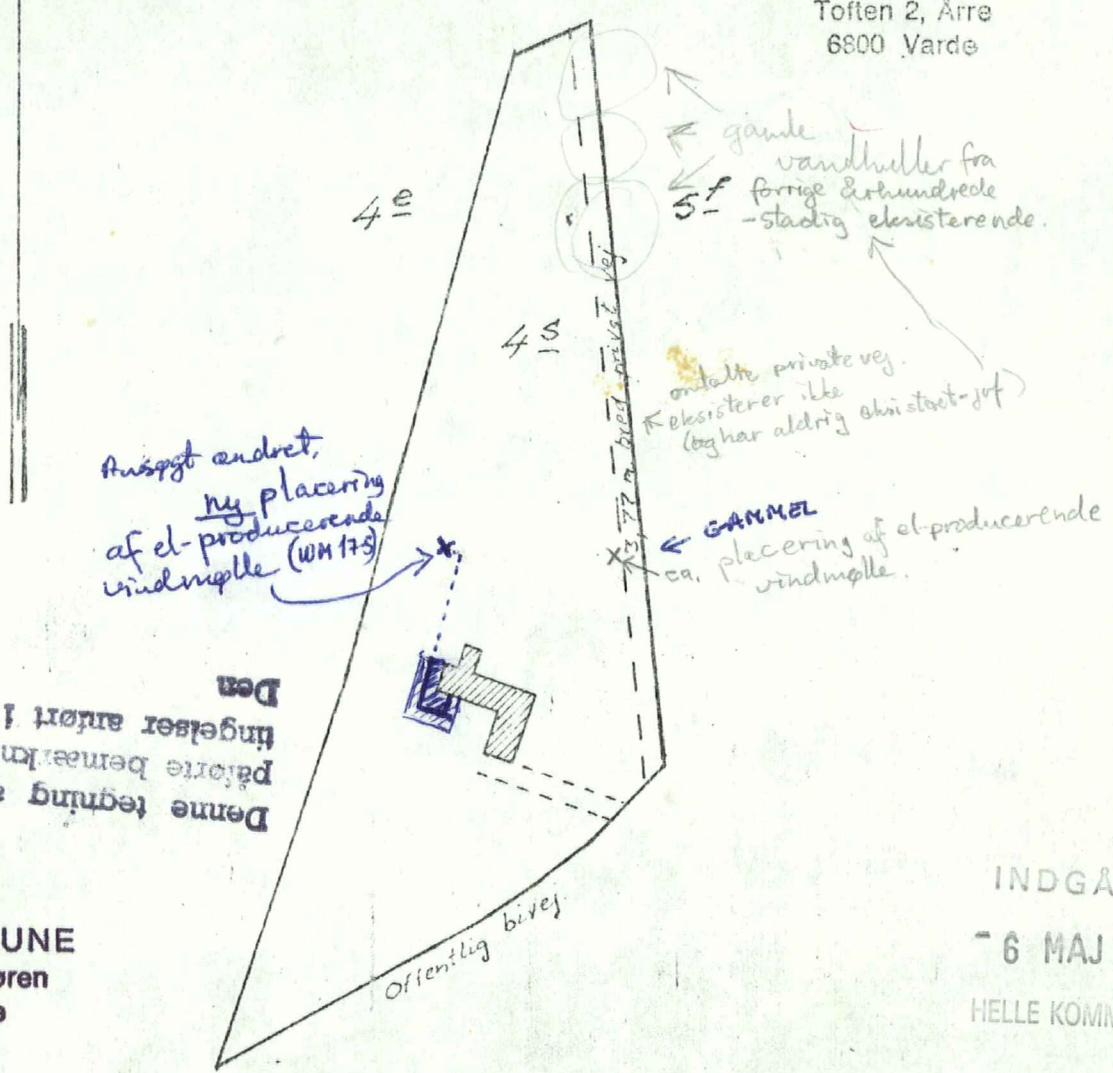 Toften 2, Årre
6800 Varde
gamle
vandhuller fra
forrige århundrede
-stadig eksisterende.
4e
5f
4s
3,77 m bred privat vej
omtalte private vej.
eksisterer ikke
(og har aldrig eksisteret-jvf)
Ansøgt ændret,
ny placering
af el-producerende
vindmølle (WM17S)
GAMMEL
ca. placering af el-producerende
vindmølle.
Denne tegning
påførte bemærkn
tingelser anført i
Den
Offentlig bivej
UNE
øren
INDGÅ
- 6 MAJ
HELLE KOMM